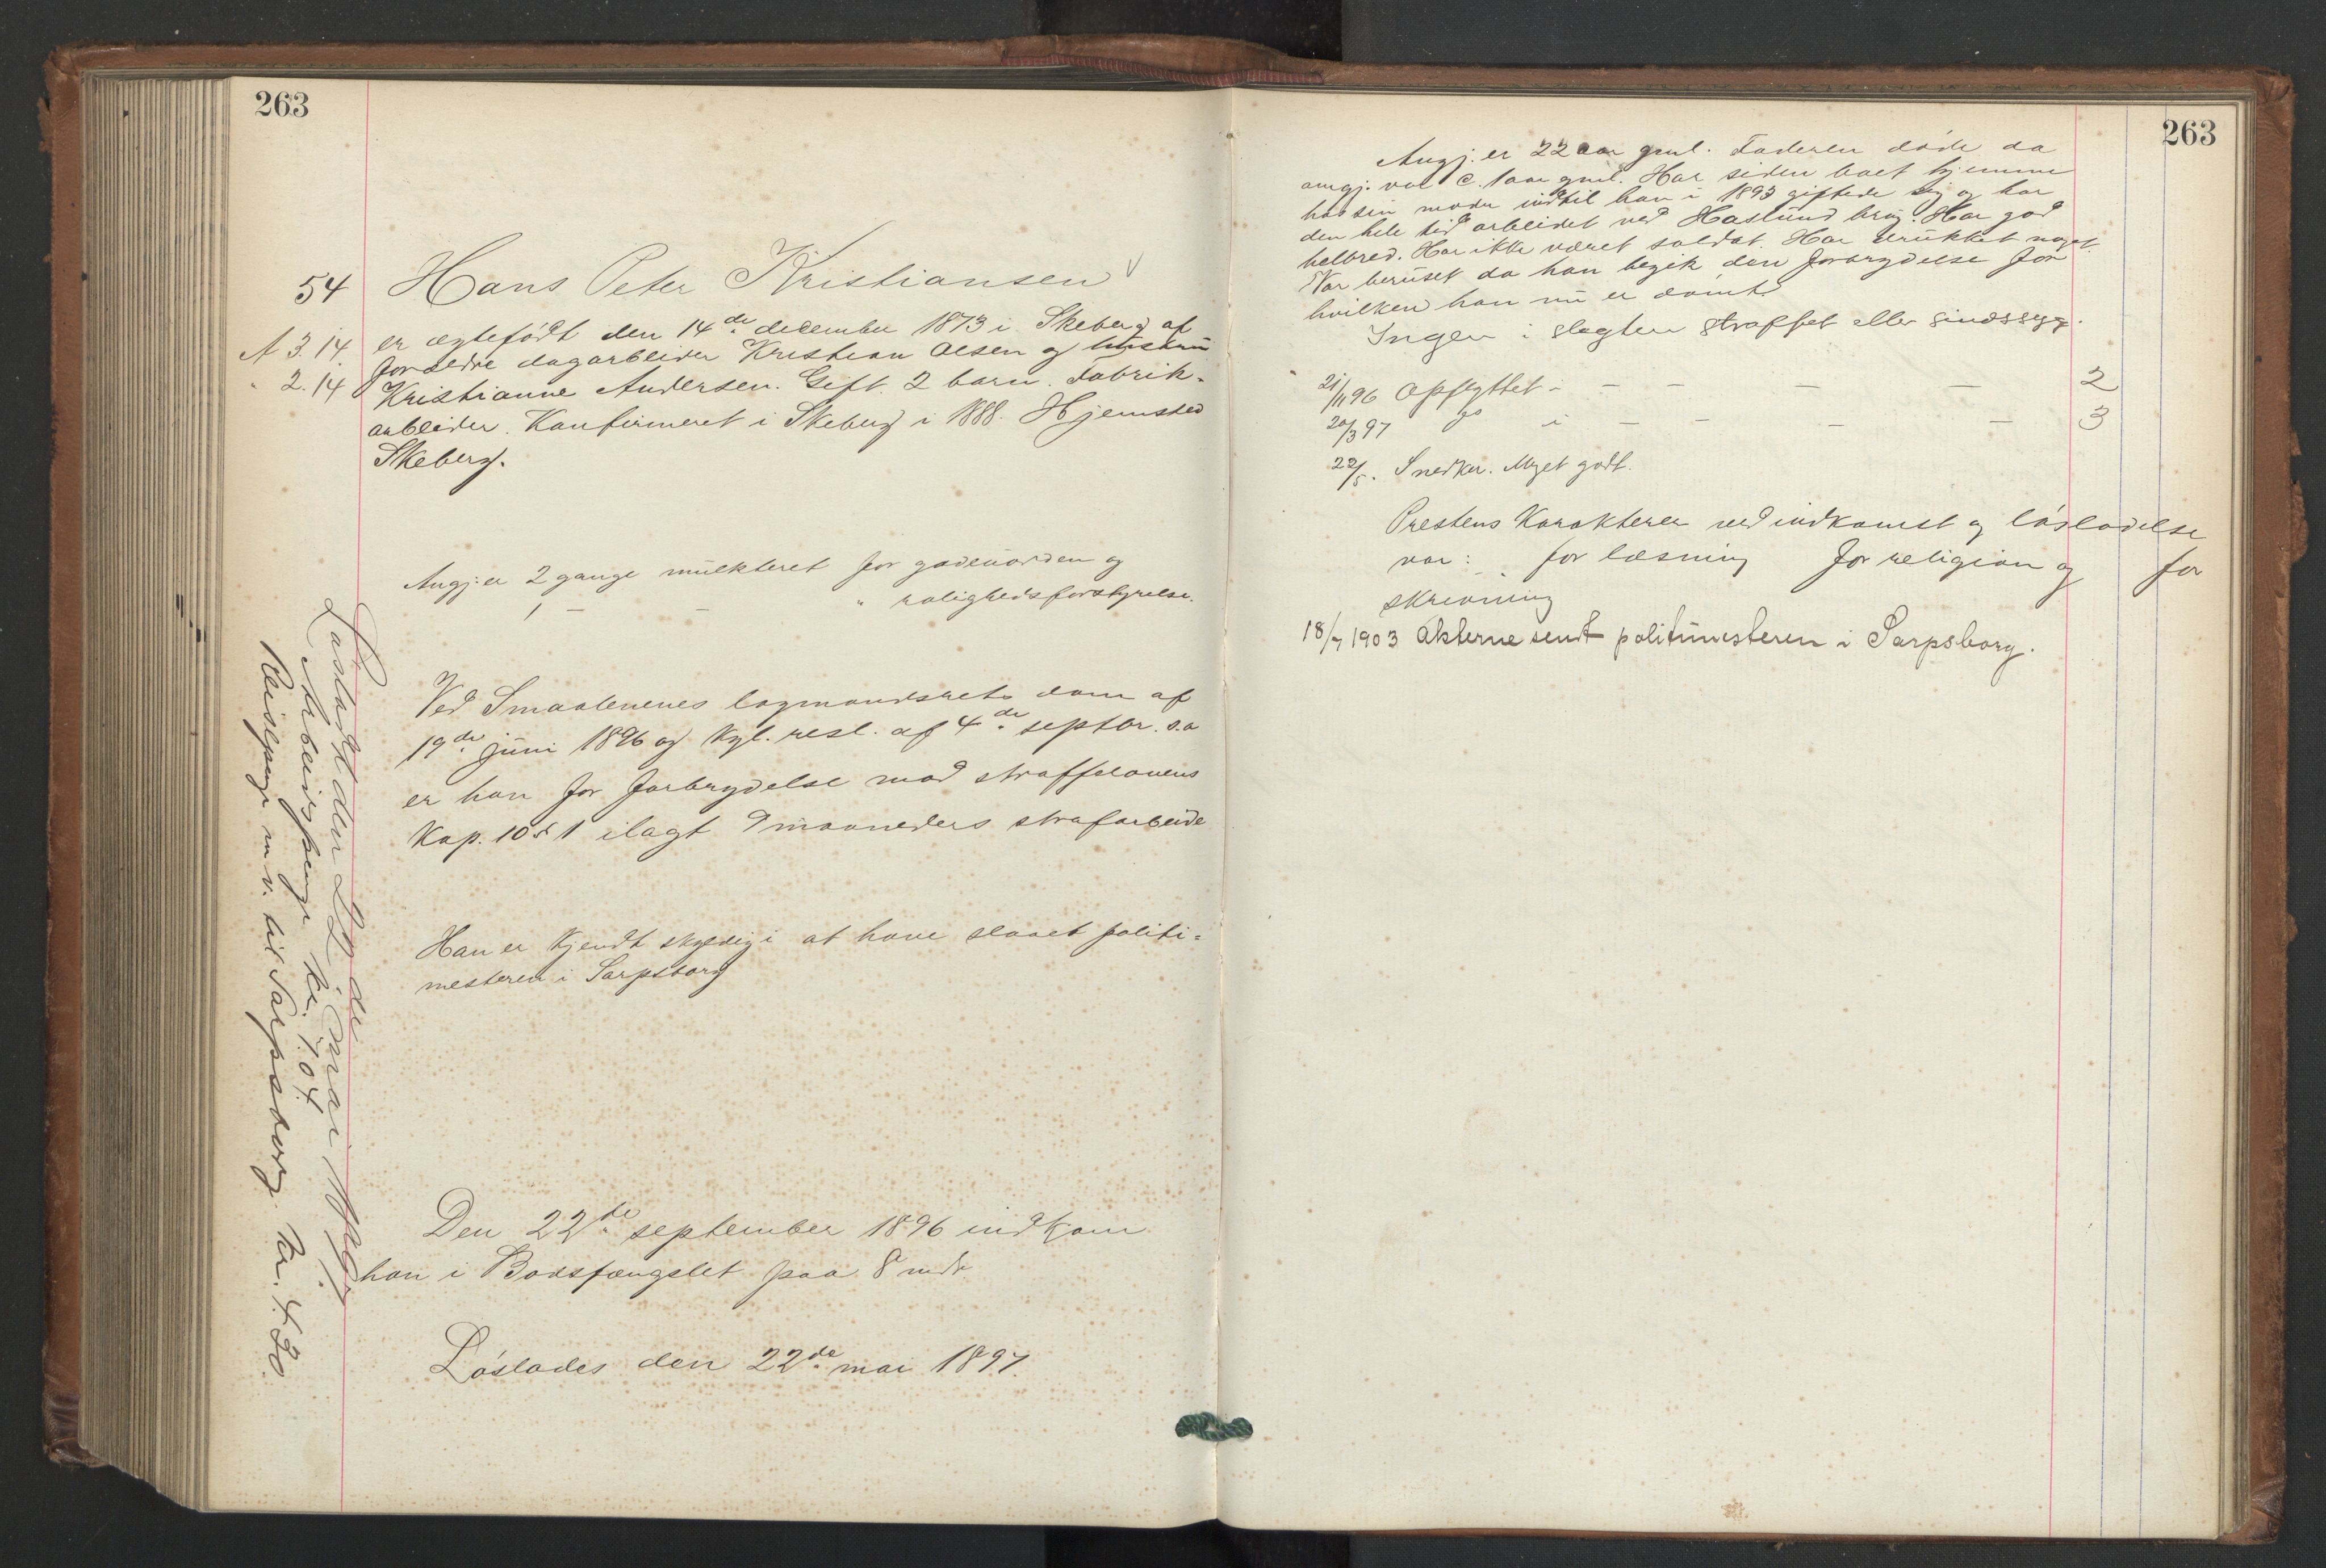 263
54 Hans Peter Kristiansen
A 3.14. er ægtefödt den 14de december 1873 i Skeberg af
" 2.14 forældre dagarbeider Kristian Olsen og hustru
Kristianne Andersen. Gift. 2 barn. Fabrik-
arbeider. Konfirmeret i Skeberg i 1888. Hjemsted
Skeberg.
Angj. er 2 gange mulkteret for gadeuorden og
1 — — " rolighedsforstyrelse.
Ved Smaalenenes lagmandsrets dom af
19de juni 1896 og kgl. resl. af 4de septbr. s.a
er han for forbrydelse mod straffelovens
Kap. 10 § 1 ilagt 9 maaneders strafarbeide
Han er kjendt skyldig i at have slaaet politi=
mesteren i Sarpsborg
Den 22de september 1896 indkom
han i Bodsfængslet paa 8 mdr
Löslades den 22de mai 1897.
Lösladt den 22de mai 1897.
Arbeidspenge kr. 7.04
Reisepenge m.v. til Sarpsborg. Kr. 4.30.
263
Angj. er 22 aar gml. Faderen döde da
angj. var c. 1 aar gml. Har siden boet hjemme
hos sin moder indtil han i 1893 giftede sig og har
den hele tid arbeidet ved Haslund brug. Har god
helbred. Har ikke været soldat. Har drukket noget.
Var beruset da han begik den forbrydelse for
hvilken han nu er dömt.
Ingen i slegten straffet eller sindssyg.
21/11 96 Opflyttet i — — — — 2
20/3 97 go i — — — — 3
22/5. Snedker. Meget godt.
Prestens Karakterer ved indkomst og lösladelse
var: for læsning for religion og for
skrivning
18/7 1903 Akterne sendt politimesteren i Sarpsborg.